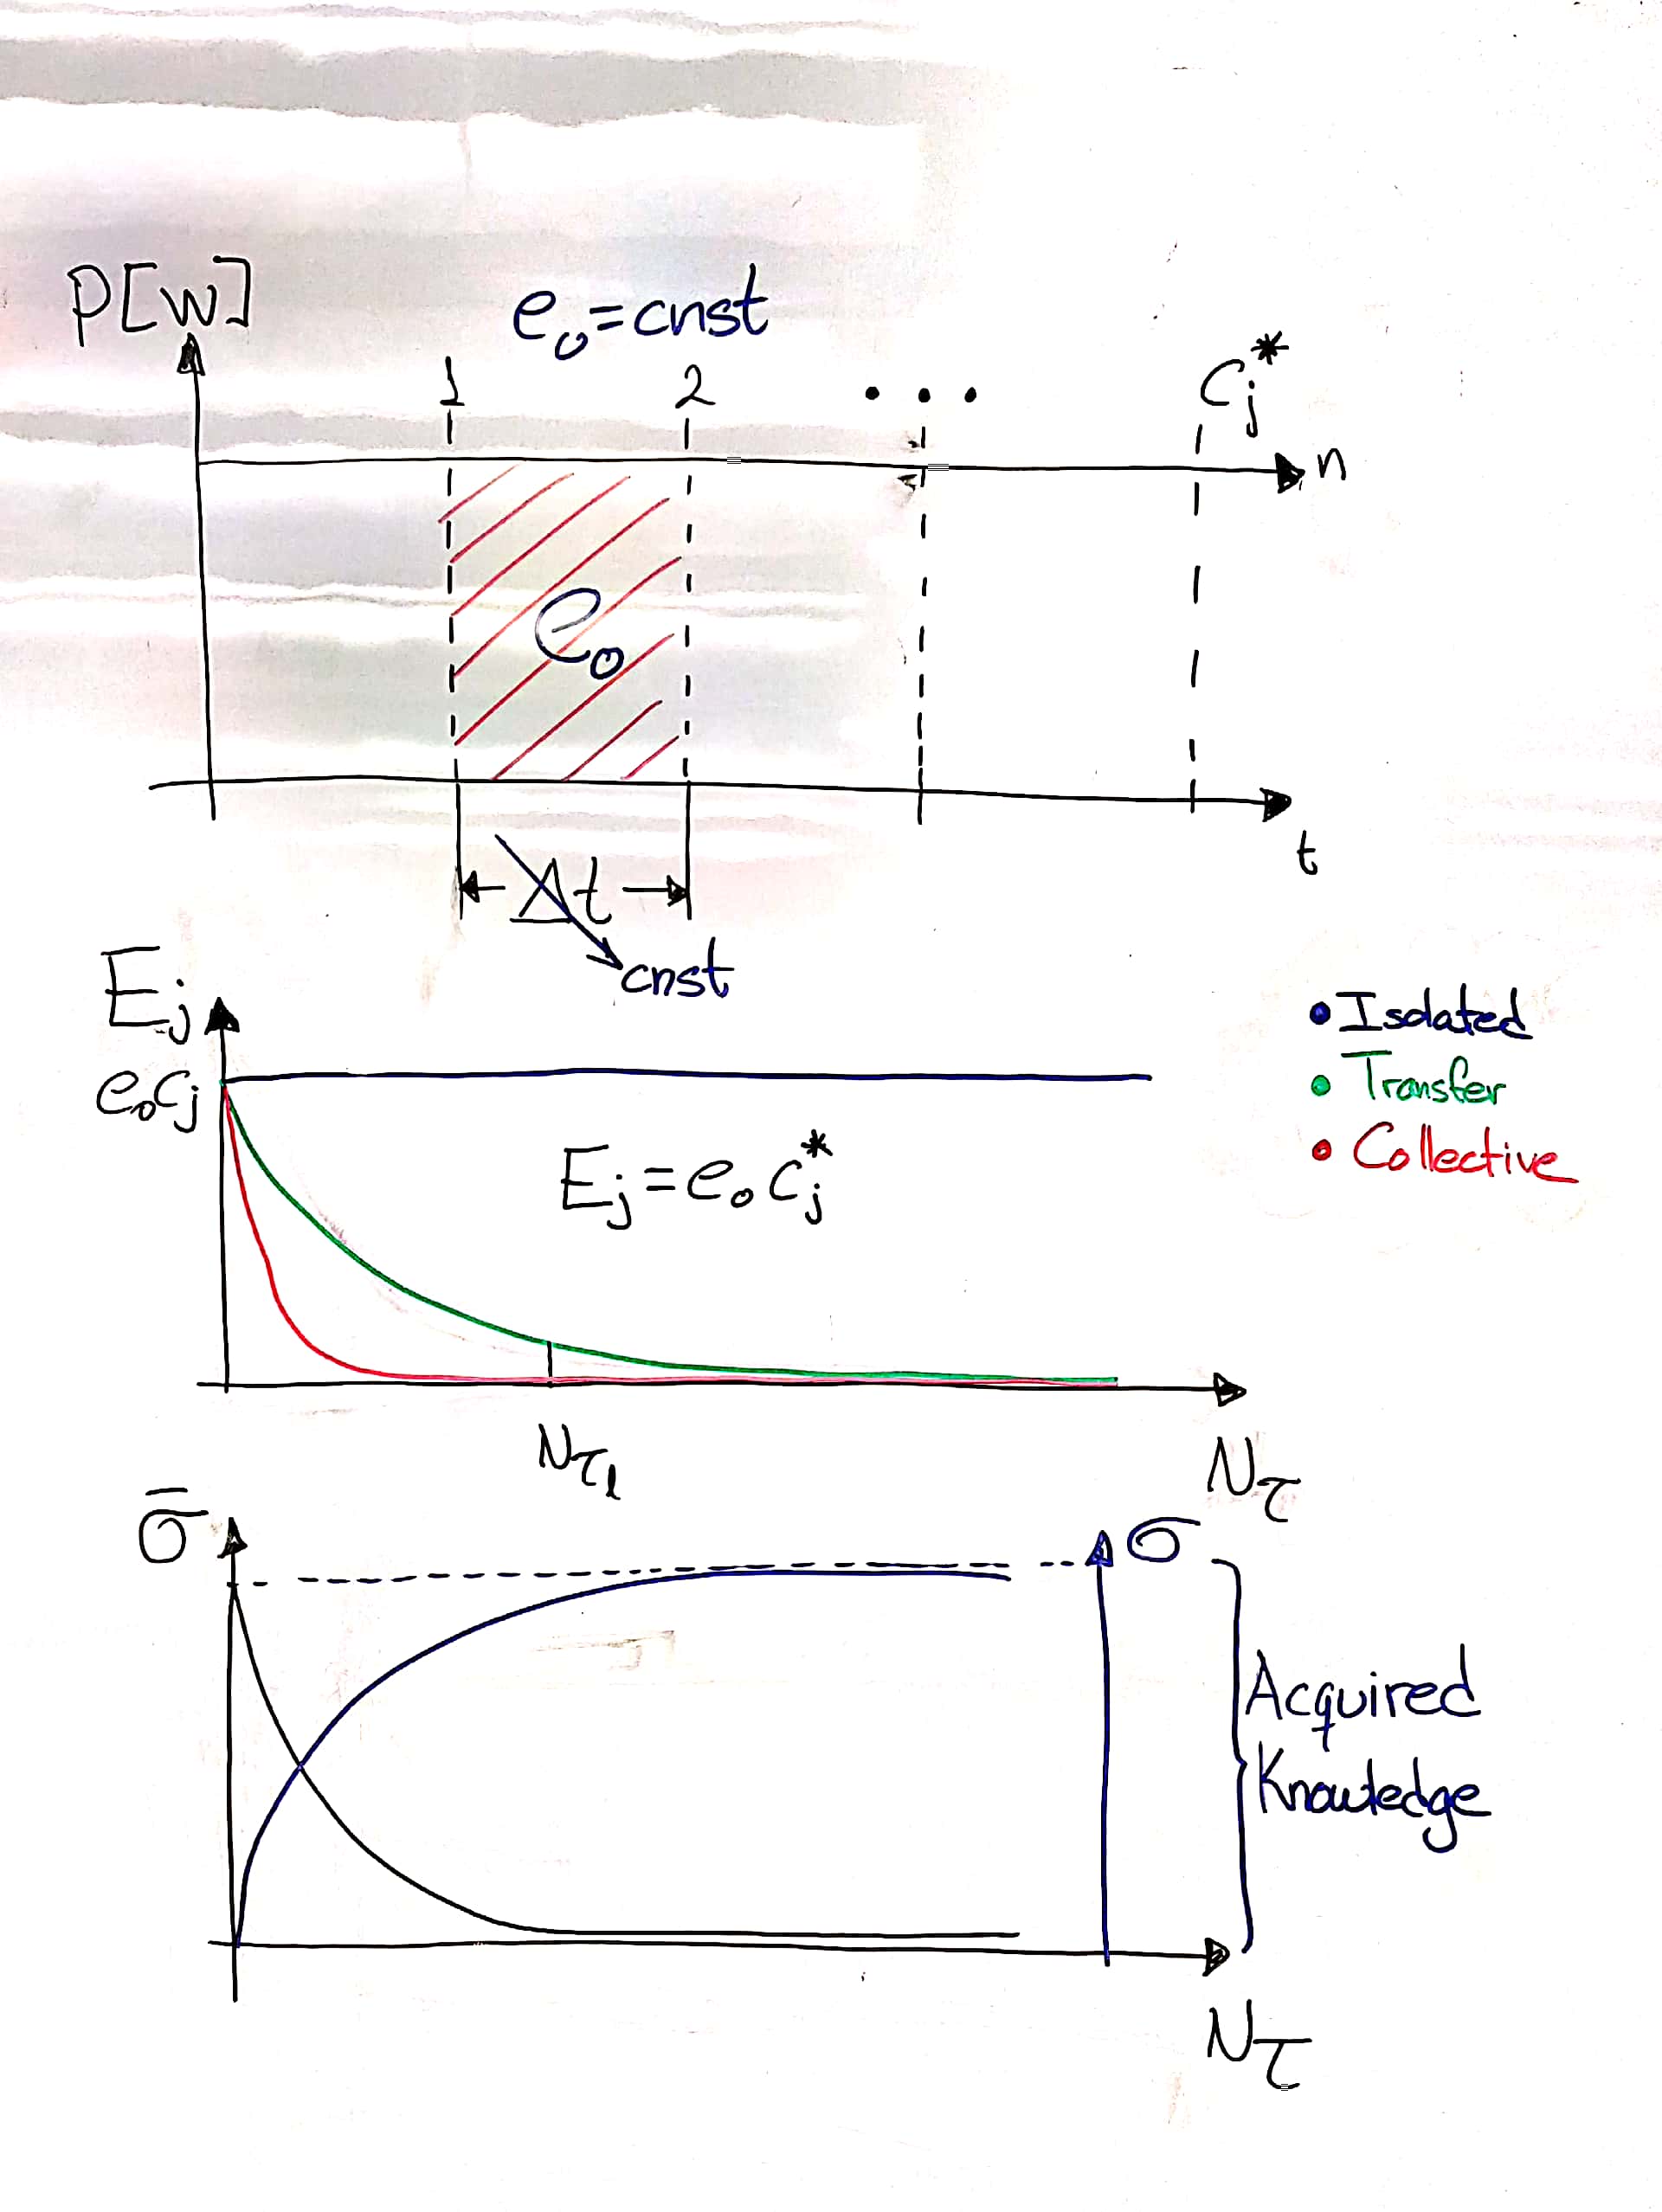 P[W]
e₀=cnst
1 2 • • • Cj*
n
e₀
t
Δt
cnst
Ej
e₀cj
• Isolated
• Transfer
• Collective
Ej = e₀ cj*
Nτ₁
Nτ
σ̄
σ
Acquired
Knowledge
Nτ